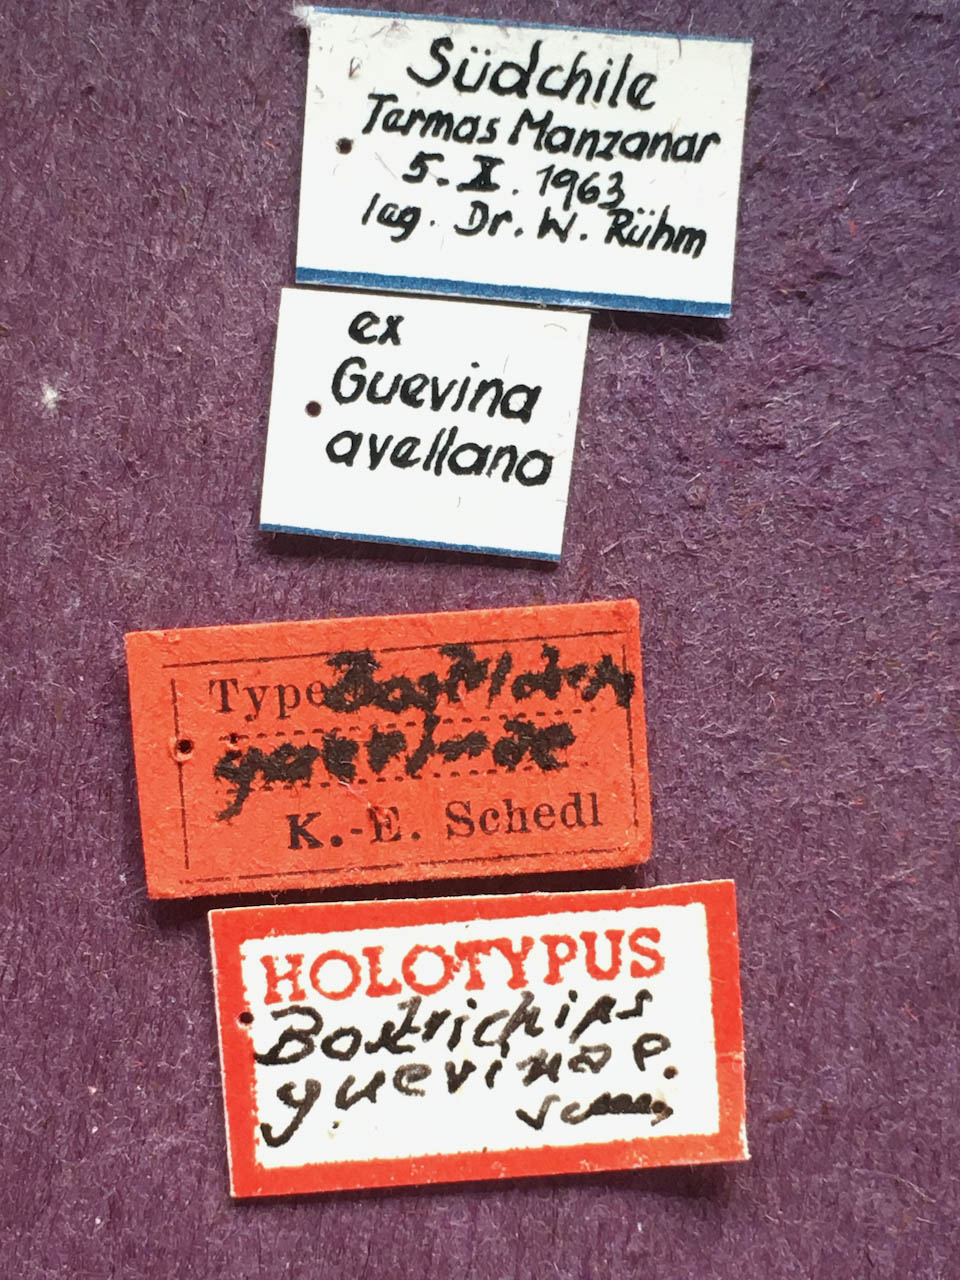 Südchile
Termas Manzanar
5. X. 1963
leg. Dr. W. Rühm
ex
Guevina
avellano
Type
guevinae
K.-E. Schedl
HOLOTYPUS
Bostrichips
guevinae.